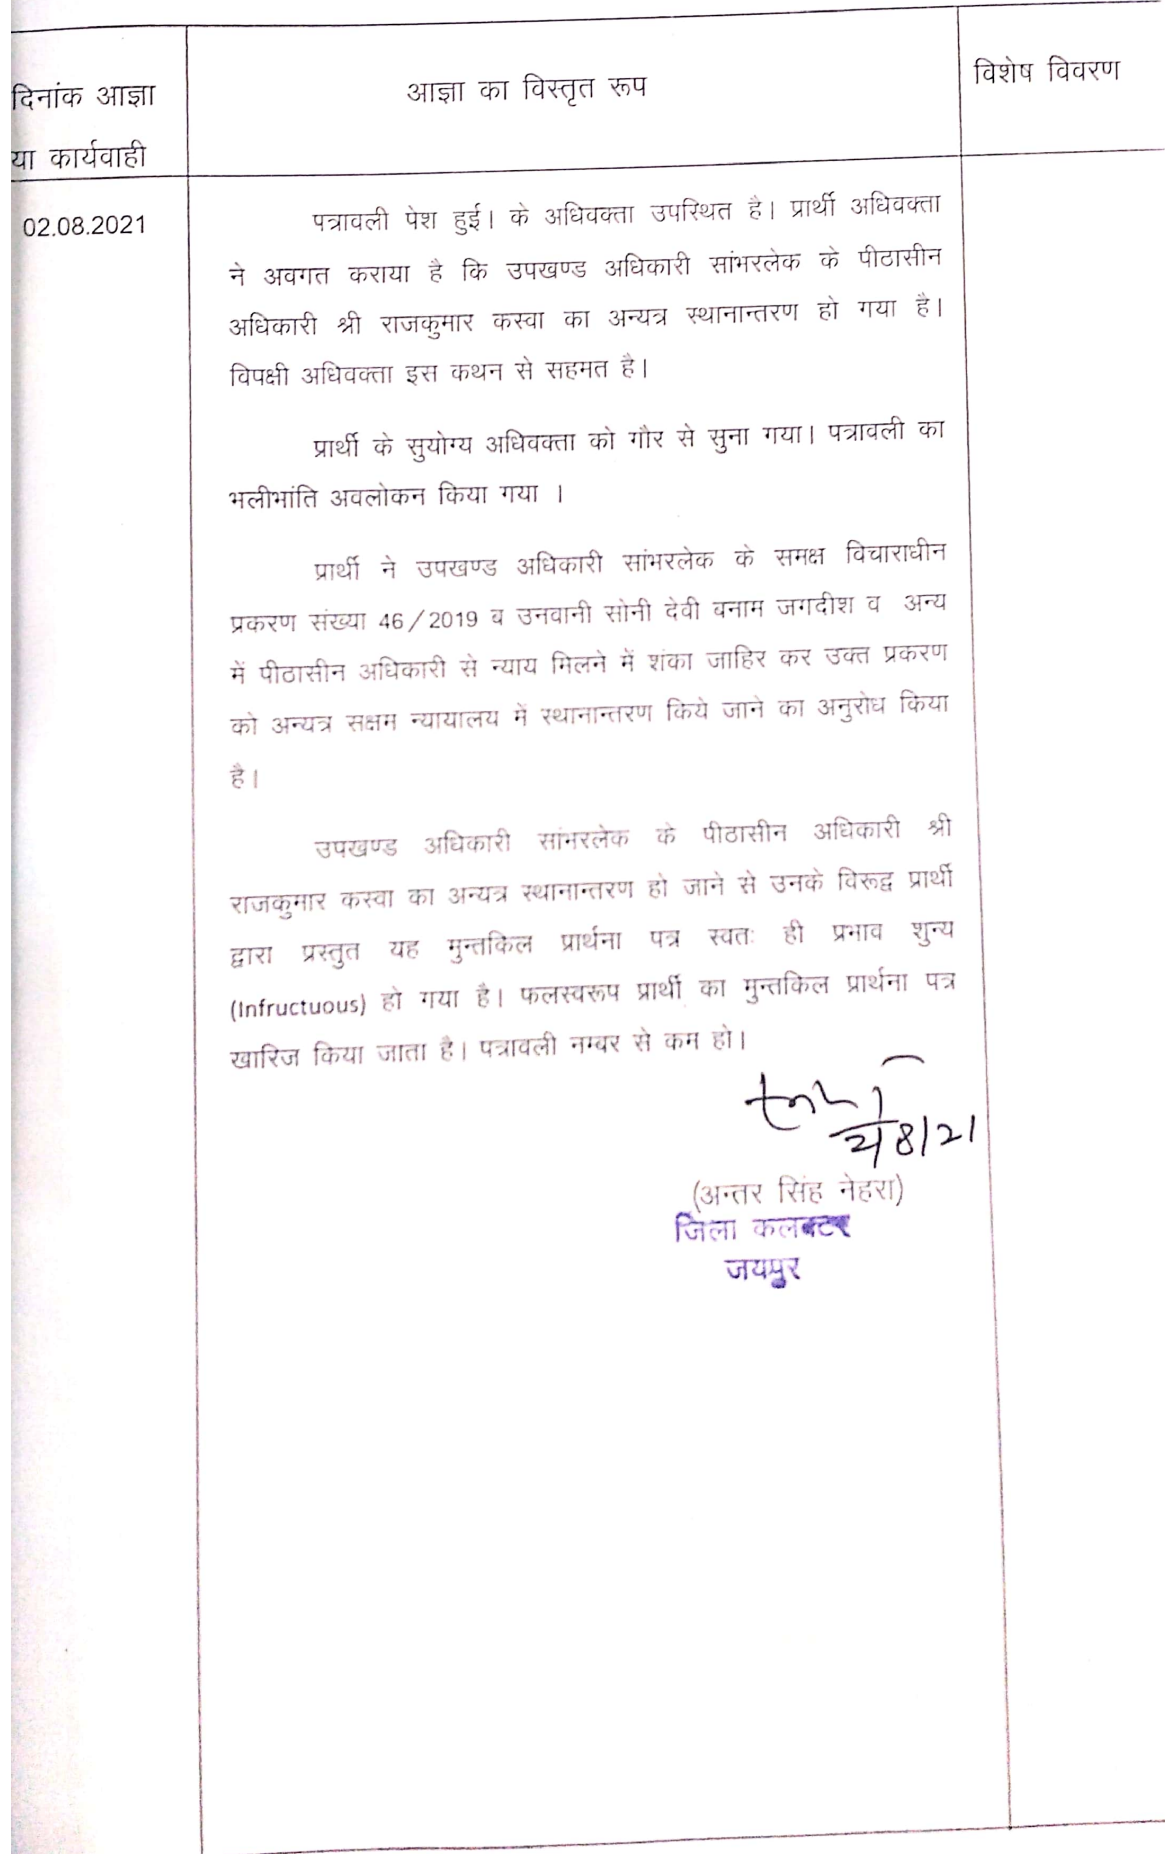 दिनांक आज्ञा
या कार्यवाही
आज्ञा का विस्तृत रूप
विशेष विवरण
02.08.2021
पत्रावली पेश हुई। के अधिवक्ता उपस्थित है। प्रार्थी अधिवक्ता
ने अवगत कराया है कि उपखण्ड अधिकारी सांभरलेक के पीठासीन
अधिकारी श्री राजकुमार कस्वा का अन्यत्र स्थानान्तरण हो गया है।
विपक्षी अधिवक्ता इस कथन से सहमत है।
प्रार्थी के सुयोग्य अधिवक्ता को गौर से सुना गया। पत्रावली का
भलीभांति अवलोकन किया गया ।
प्रार्थी ने उपखण्ड अधिकारी सांभरलेक के समक्ष विचाराधीन
प्रकरण संख्या 46/2019 ब उनवानी सोनी देवी बनाम जगदीश व अन्य
में पीठासीन अधिकारी से न्याय मिलने में शंका जाहिर कर उक्त प्रकरण
को अन्यत्र सक्षम न्यायालय में स्थानान्तरण किये जाने का अनुरोध किया
है।
उपखण्ड अधिकारी सांभरलेक के पीठासीन अधिकारी श्री
राजकुमार कस्वा का अन्यत्र स्थानान्तरण हो जाने से उनके विरूद्व प्रार्थी
द्वारा प्रस्तुत यह मुन्तकिल प्रार्थना पत्र स्वतः ही प्रभाव शुन्य
(Infructuous) हो गया है। फलस्वरूप प्रार्थी का मुन्तकिल प्रार्थना पत्र
खारिज किया जाता है। पत्रावली नम्बर से कम हो।
2/8/21
(अन्तर सिंह नेहरा)
जिला कलक्टर
जयपुर